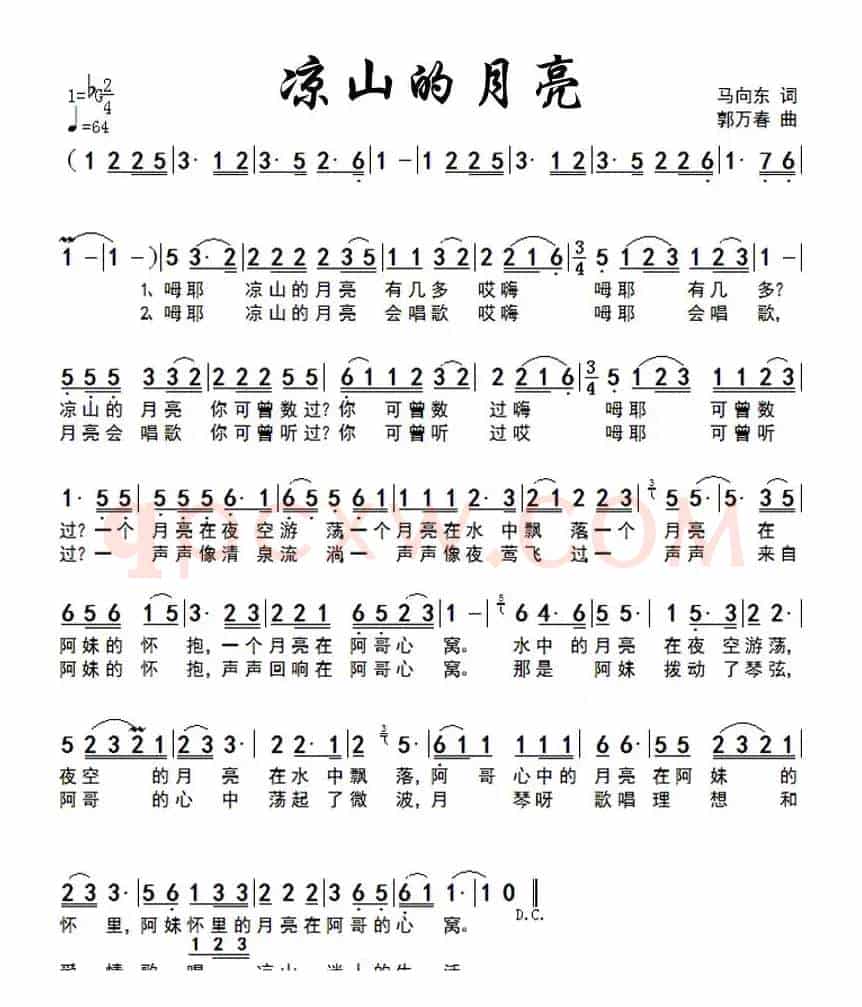 凉山的月亮
1=♭G 2/4
♩=64
马向东 词
郭万春 曲
(1 2 2 5|3· 1 2|3· 5 2· 6|1 -|1 2 2 5|3· 1 2|3· 5 2 2 6|1· 7 6|
1 -|1 -)|5 3· 2|2 2 2 2 3 5|1 1 3 2|2 2 1 6|3/4 5 1 2 3 1 2 3|1 -|
1、呣耶 凉山的月亮 有几多 哎嗨 呣耶 有几 多?
2、呣耶 凉山的月亮 会唱歌 哎嗨 呣耶 会唱 歌,
5 5 5 3 3 2|2 2 2 5 5|6 1 1 2 3 2|2 2 1 6|3/4 5 1 2 3 1 1 2 3|
凉山的 月亮 你可曾数过?你 可曾数 过嗨 呣耶 可曾数
月亮会 唱歌 你可曾听过?你 可曾听 过哎 呣耶 可曾听
1· 5 5|5 5 5 6· 1|6 5 5 6|1 1 1 2· 3|2 1 2 1|3 5 5·|5· 3 5|
过?一个 月亮在夜 空游 荡,一个 月亮在水 中飘 落一个 月亮 在
过?一 声声像清 泉流 淌,一 声声像夜 莺飞 过,一 声声 来自
qpcxw.com
6 5 6 1 5|3· 2 3|2 2 1 6 5 2 3|1 -|5 6 4· 6|1 5· 3|2 2·|
阿妹的 怀 抱,一个 月亮在 阿哥心 窝。 水中 的 月亮 在夜 空游荡,
阿妹的 怀 抱,声声 回响在 阿哥心 窝。 那是 阿妹 拨动 了琴弦,
5 2 3 2 1|2 3 3·|2 2 2· 1|2 3 5·|6 1 1 1 1 1|5 5 5 2 3 2 1|
夜空 的 月 亮 在水 中飘 落,阿哥 心 中的 月亮在阿妹 的
阿哥 的 心 中 荡起 了微 波,月 琴呀 歌唱 理 想 和
2 3 3·|5 6 1 3 3|2 2 2 3·|1 6 5|6 1 1·|1 0‖
D.C.
怀 里,阿妹怀里的月亮在阿哥的心 窝。
1 2 3